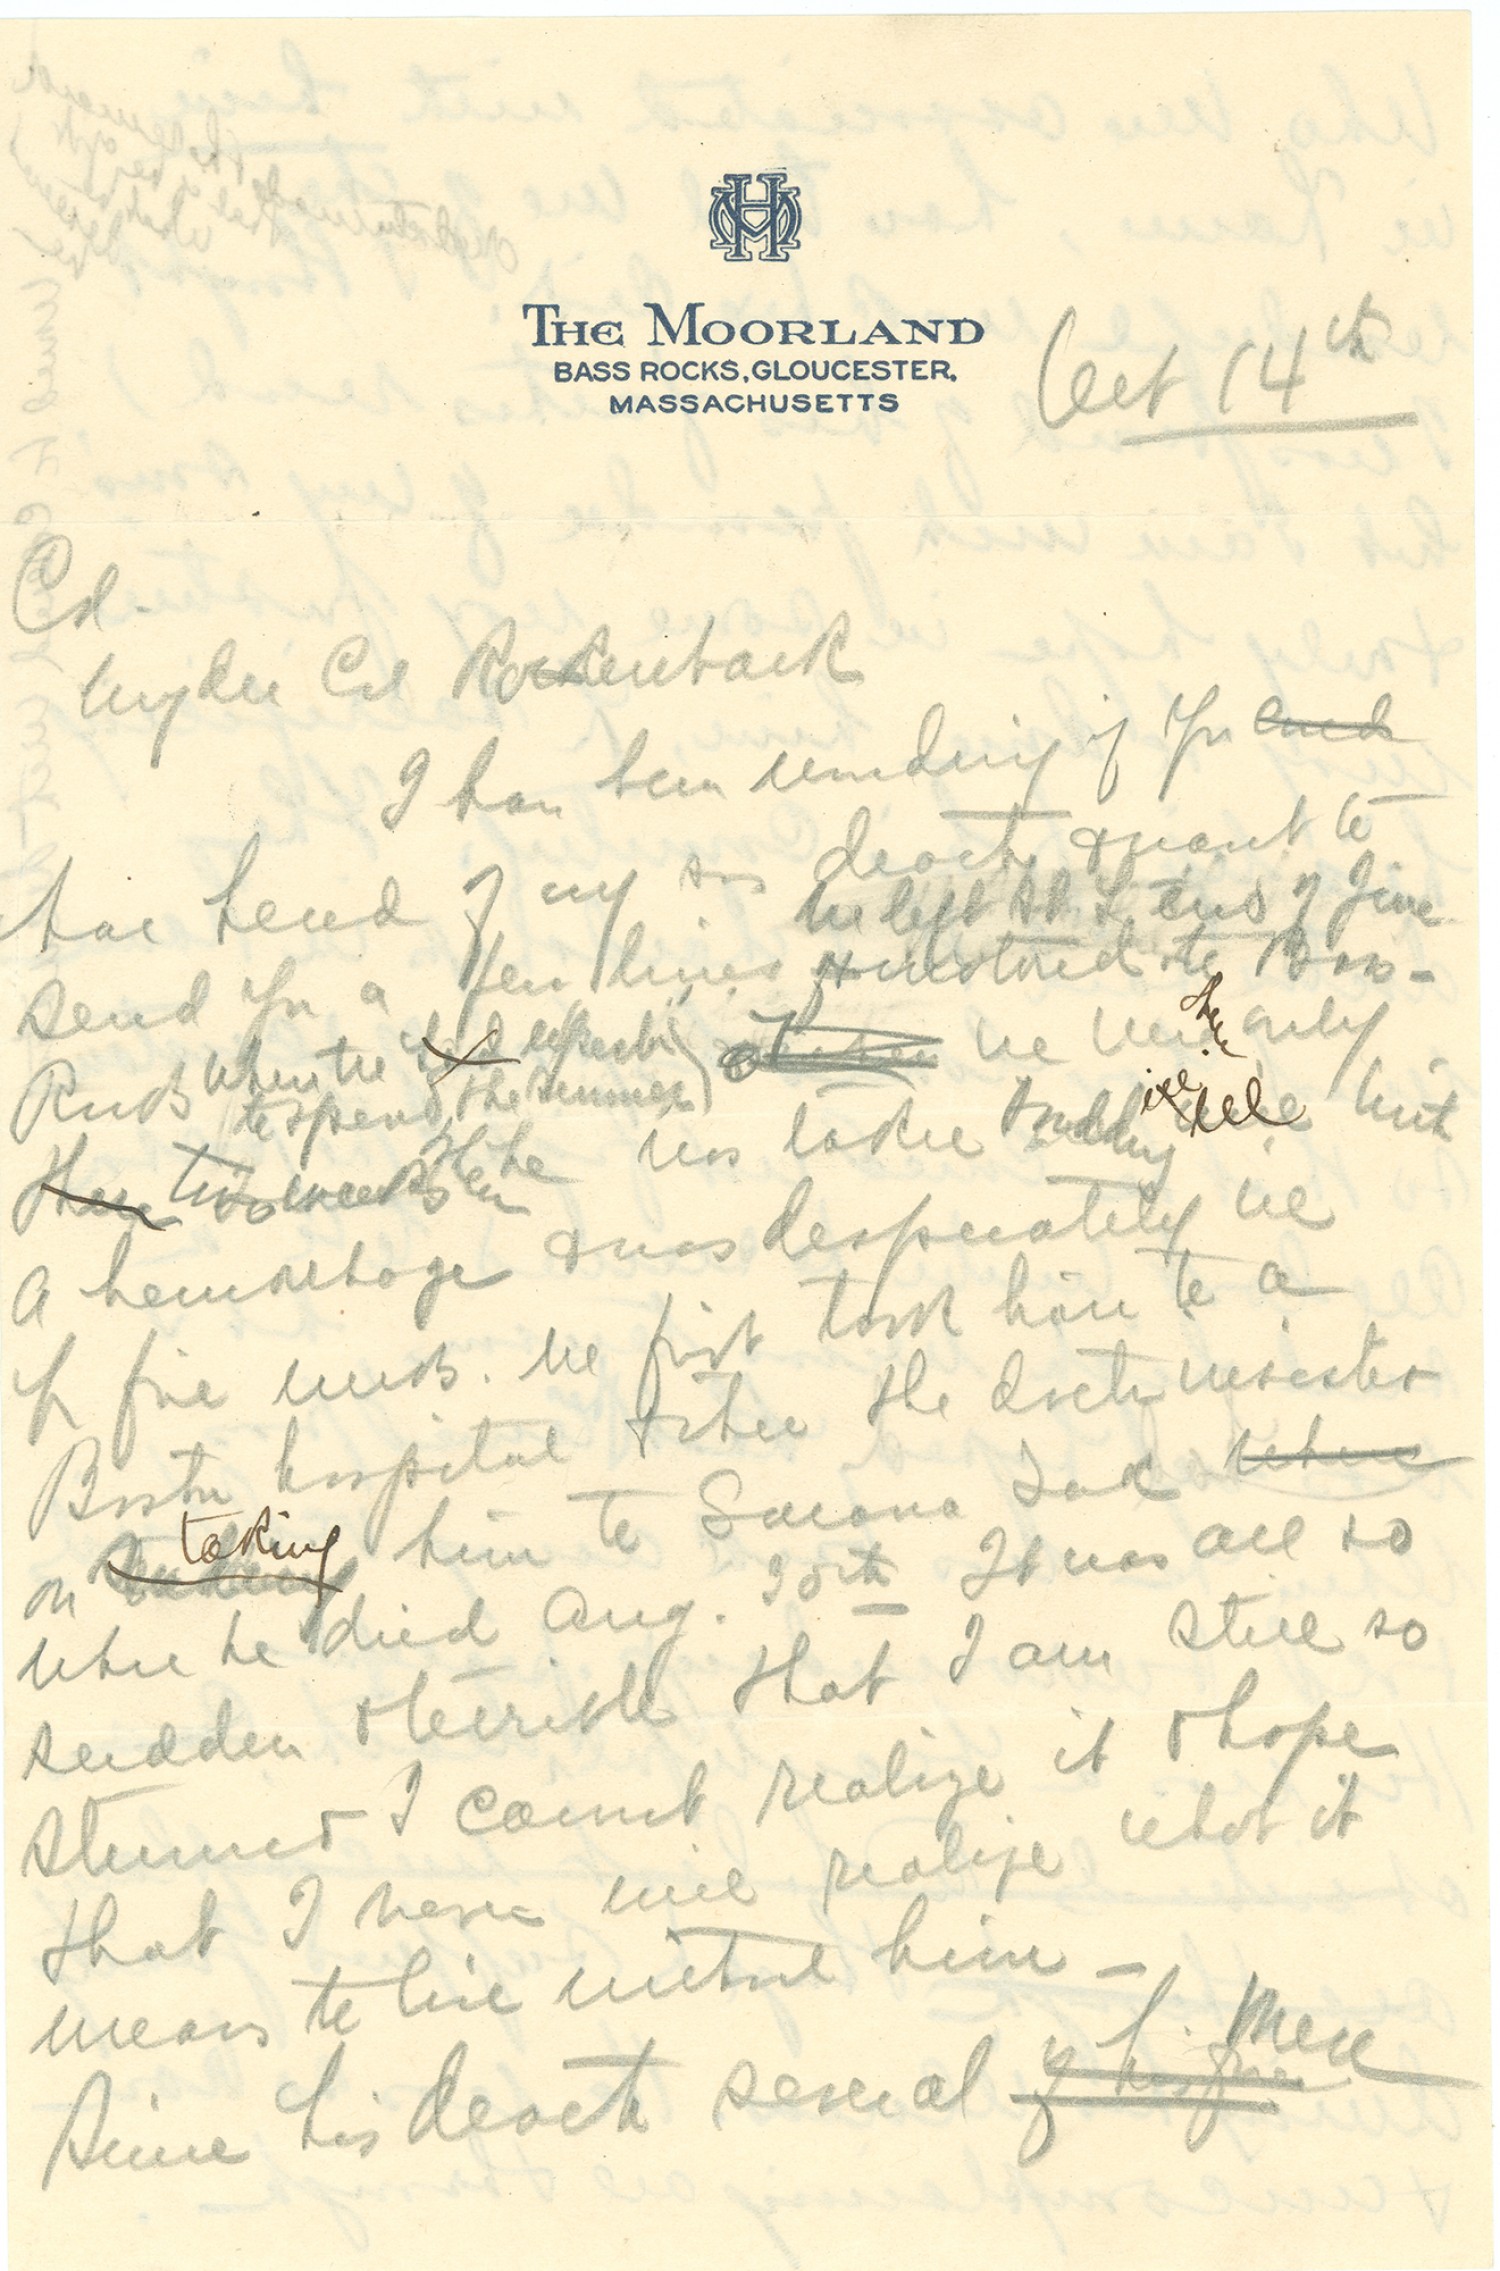 THE MOORLAND
BASS ROCKS, GLOUCESTER,
MASSACHUSETTS
Oct 14th
Col.
My dear Col Rockenback
I have been wondering if you and
have heard of my son's death & want to
he left St. L. end of June
send you a few lines & motored to Bass-
Rocks when we
to spend the summer) we were there only
then two weeks when he was taken suddenly ill with
a hemorhage & was desperately ill
for five weeks. We first took him to a
Boston hospital & then the doctor insisted
on taking him to Saranac Lake where
where he died Aug. 30th It was all so
sudden & terrible that I am still so
stunned I cannot realize it & hope
that I never will realize what it
means to live without him –
Since his death several of his men